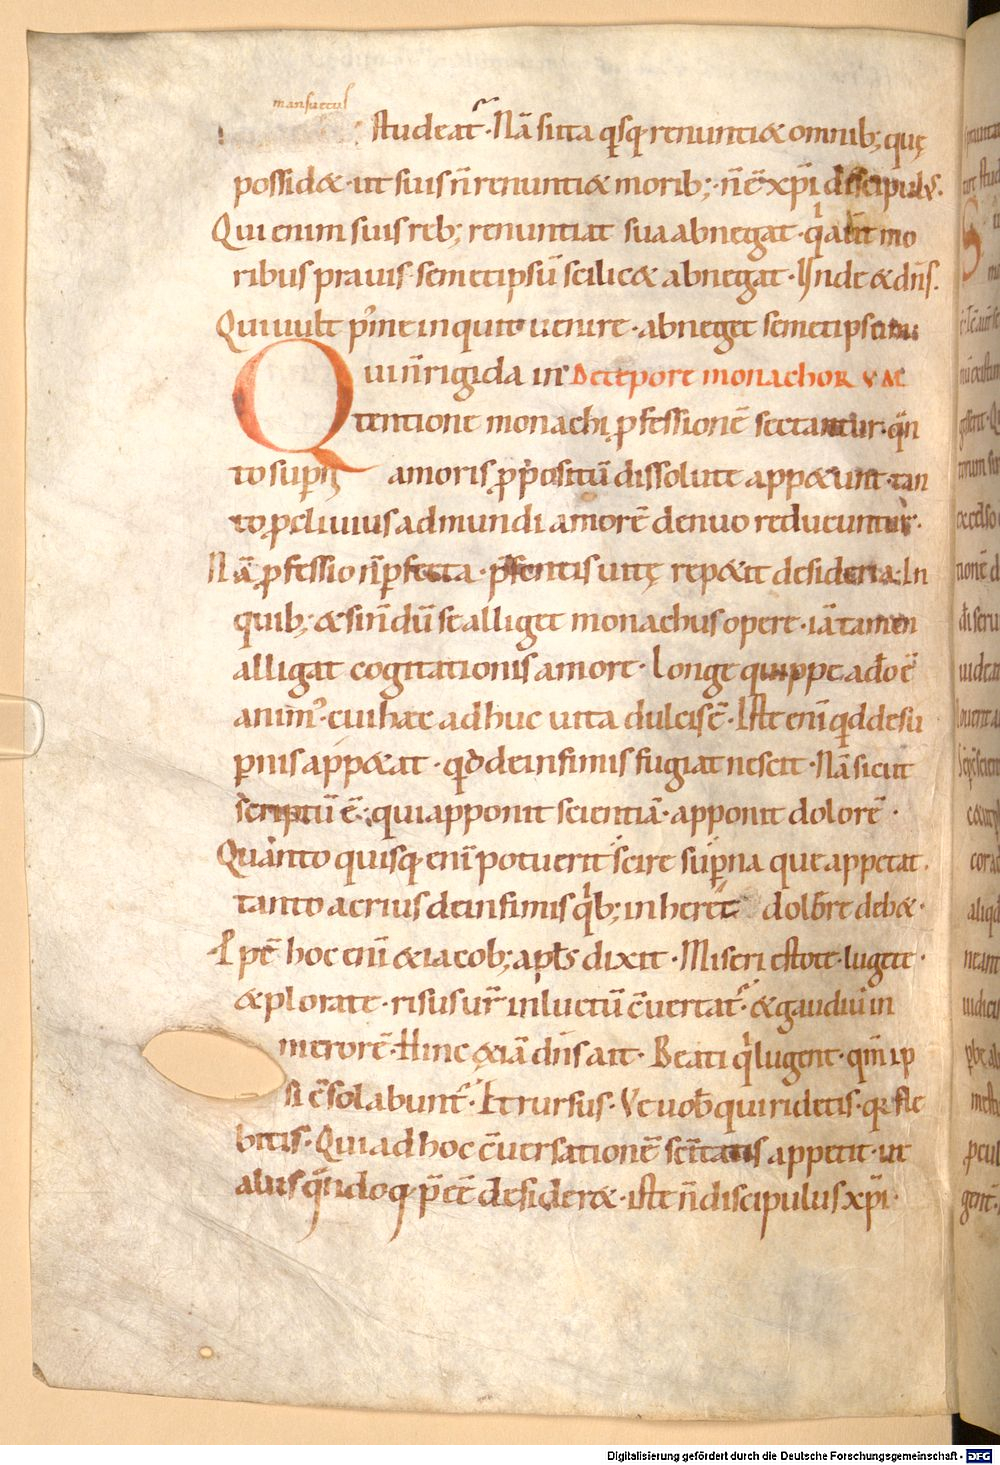 mansuetus
studeat᷑. Nā si ita qͥsq; renunti& omnib; quę
possid&. ut suis n̄ renunti& morib;. n̄ ē xp̄i discipul᷒.
Qui enim suis reb; renuntiat sua abnegat. qͥ aut̄ mo
ribus prauis semetipsū scilic& abnegat. Inde & dn̄s.
Qui uult p᷒ me inquit uenire. abneget semetipsum
Qui n̄ rigida in De tepore monachoR VAC
tentione monachi ꝓfessionē sectantur. qͣn
to supn̄ę amoris ꝓpositū dissolute app&unt. tan
to ꝓcliuius ad mundi amorē denuo reducuntur.
Nā ꝓfessio n̄ ꝑfecta. p̄sentis uitę rep&it desideria. In
quib; & si n̄dū se alliget monachus opere. iā tamen
alligat cogitationis amore. Longe quippe a dō ē
anim᷒. cui hæc adhuc uita dulcis ē. Iste eni̅ qͥd de su
ꝑnis app&at. qd̄ de infimis fugiat nescit. Nā sicut
scriptū ē. qui apponit scientiā. apponit dolorē.
Quanto quisq; eni̅ potuerit scire suꝑna que appetat.
tanto acrius de infimis qͥb; inheret dolere deb&.
Ipē hoc eni̅ & iacob; apl̄s dixit. Miseri estote. lugete.
& plorate. risus ur̄ in luctū c̄uertat᷑. & gaudiū in
merorē. Hinc & iā dn̄s ait. Beati qͥ lugent. qm̄ ip
si c̄solabunt᷑. Et rursus. Ve uob̄ qui ridetis. qꝛ fle
bitis. Qui ad hoc c̄uersationē sc̄itatis appetit. ut
aliis qͣndoq; p̄eē desider&. iste n̄ discipulus xp̄i.
Digitalisierung gefördert durch die Deutsche Forschungsgemeinschaft - DFG